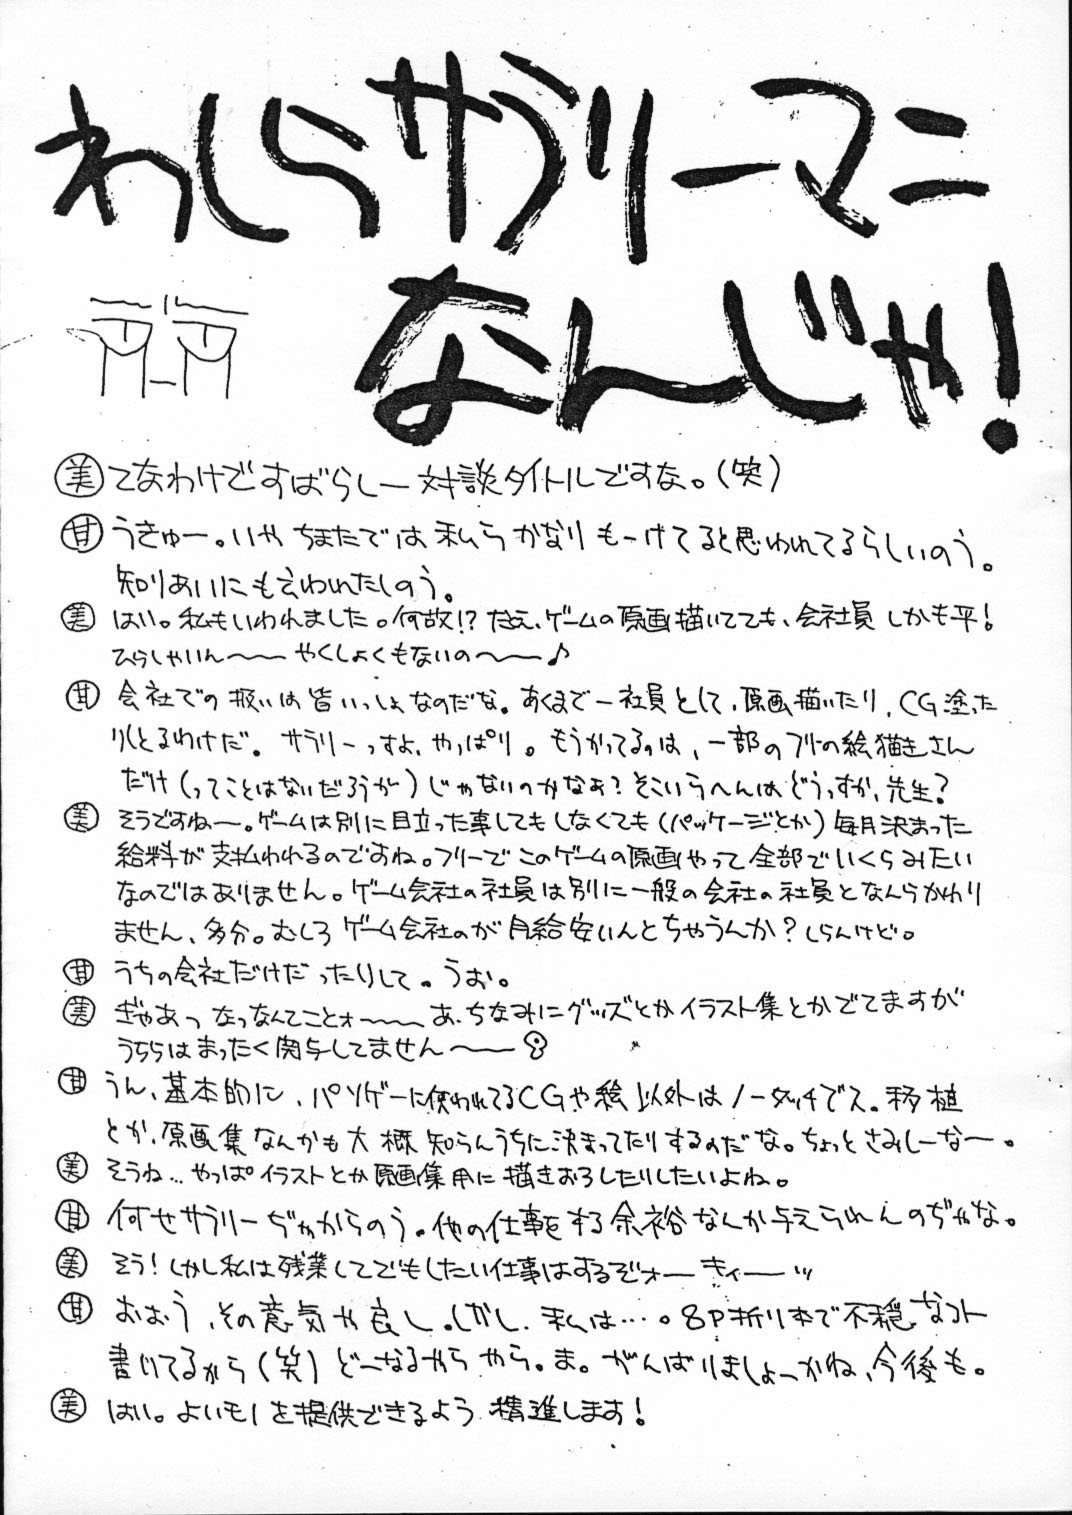 わしらサラリーマニ
なんじゃ!
美 てなわけですばらしー対談タイトルですな。(笑)
甘 うきゅー。いやちまたでは私らかなりもーけてると思われてるらしいのう。
知りあいにも言われたしのう。
美 はい。私もいわれました。何故!?たとえ、ゲームの原画描いてても、会社員しかも平!
ひらしゃいん〜〜やくしょくもないの〜〜♪
甘 会社での扱いは皆いっしょなのだな。あくまで一社員として、原画描いたり、CG塗った
りしとるわけだ。サラリーっすよ、やっぱり。もうかってるのは、一部のフリーの絵描きさん
だけ(ってことはないだろうが)じゃないのかなぁ?そこいらへんはどうっすか、先生?
美 そうですね〜。ゲームは別に目立った事してもしなくても(パッケージとか)毎月決まった
給料が支払われるのですね。フリーでこのゲームの原画やって全部でいくらみたい
なのではありません。ゲーム会社の社員は別に一般の会社の社員となんらかわり
ません、多分。むしろゲーム会社のが月給安いんとちゃうんか?しらんけど。
甘 うちの会社だけだったりして。うお。
美 ぎゃあっなっなんてことォ〜〜あ、ちなみにグッズとかイラスト集とかでてますが
うちらはまったく関与してません〜〜
甘 うん、基本的に、パソゲーに使われてるCGや絵以外はノータッチでス。移植
とか、原画集なんかも大概知らんうちに決まってたりするのだな。ちょっとさみしーなー。
美 そうね…やっぱイラストとか原画集用に描きおろしたりしたいよね。
甘 何せサラリーぢゃからのう。他の仕事をする余裕なんか与えられんのぢゃな。
美 そう!しかし私は残業してでもしたい仕事はするぞォーキィーッ
甘 おおう、その意気や良し。しかし、私は…。8P折り本で不穏なコト
書いてるから(笑)どーなるやらやら。ま。がんばりましょーかね、今後も。
美 はい。よいモノを提供できるよう精進します!